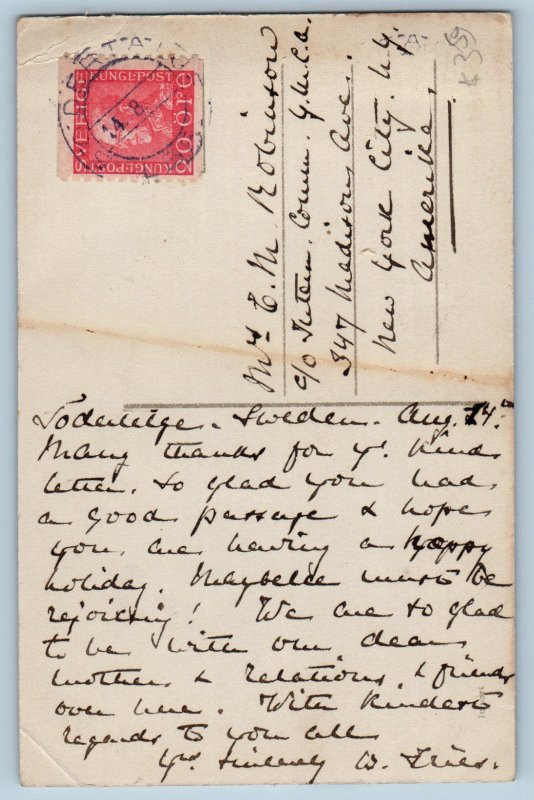 SVERIGE
KUNGL-POST
KUNGL-POST
20 öre
14.8
x35
Mrs C. M. Robinson
c/o Intern. Comm. Y.M.C.A.
347 Madison Ave.
New York City. N.Y.
Amerika.
Södertelge. Sweden. Aug. 14th
Many thanks for yr. kind
letter. So glad you had
a good passage & hope
you are having a happy
holiday. Maybelle must be
rejoicing! We are so glad
to be with our dear
mother & relations & friends
over here. With kindest
regards to you all
Yrs sincerely W. Fries.